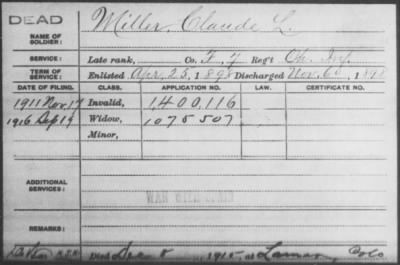 DEAD
NAME OF SOLDIER: Miller, Claude L.
SERVICE: Late rank, Co. F, 7 Reg't Oh. Inf.
TERM OF SERVICE: Enlisted Apr. 25, 1898 Discharged Nov. 6, 1898
DATE OF FILING. CLASS. APPLICATION NO. LAW. CERTIFICATE NO.
1911 Nov 17 Invalid, 1,400,116
1916 Sep 19 Widow, 1075507
Minor,
ADDITIONAL SERVICES:
WAR WITH SPAIN
REMARKS:
Died Dec 8 1915, at Lamar, Colo